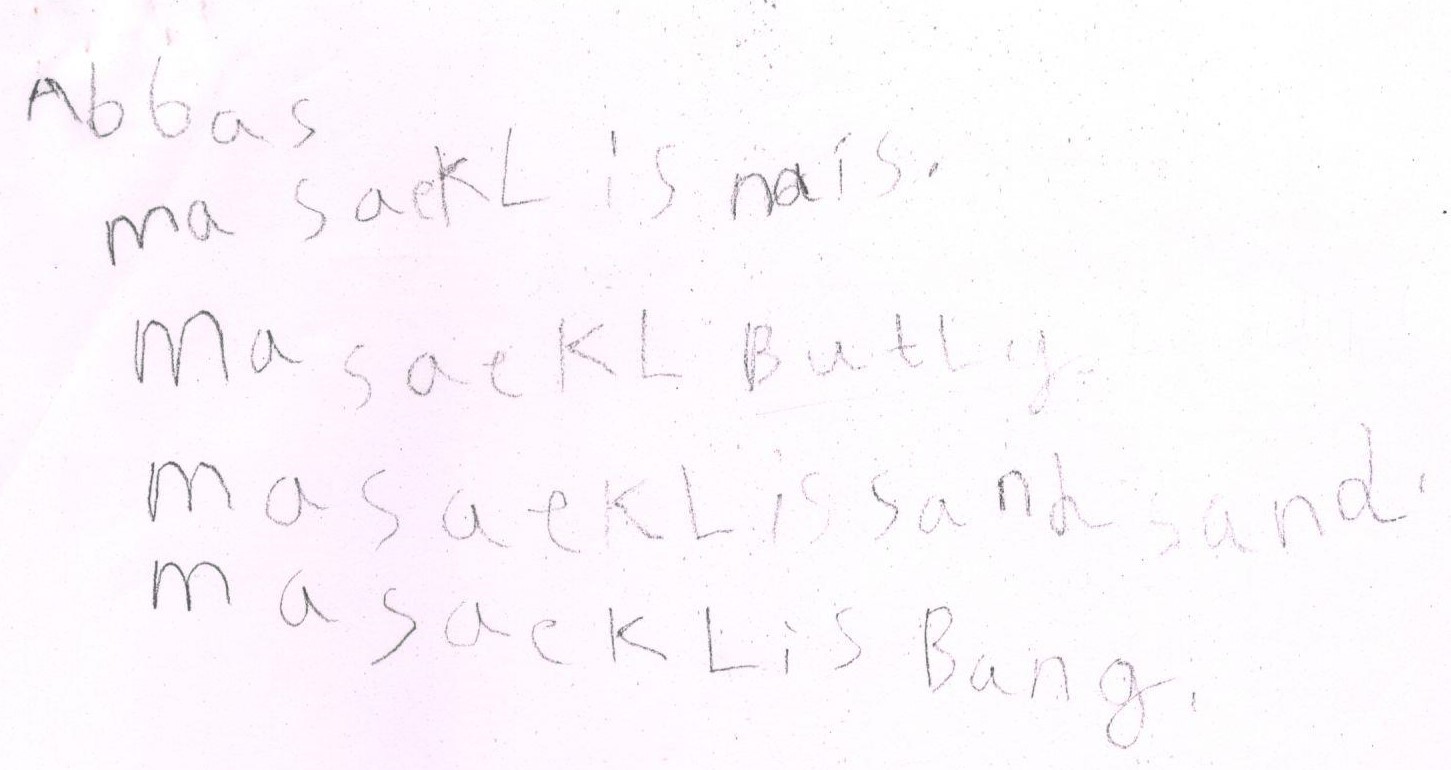 Abbas
ma saekL is nais.
Ma saekL ButLy.
ma saekL is sand sand.
ma saekL is Bang.